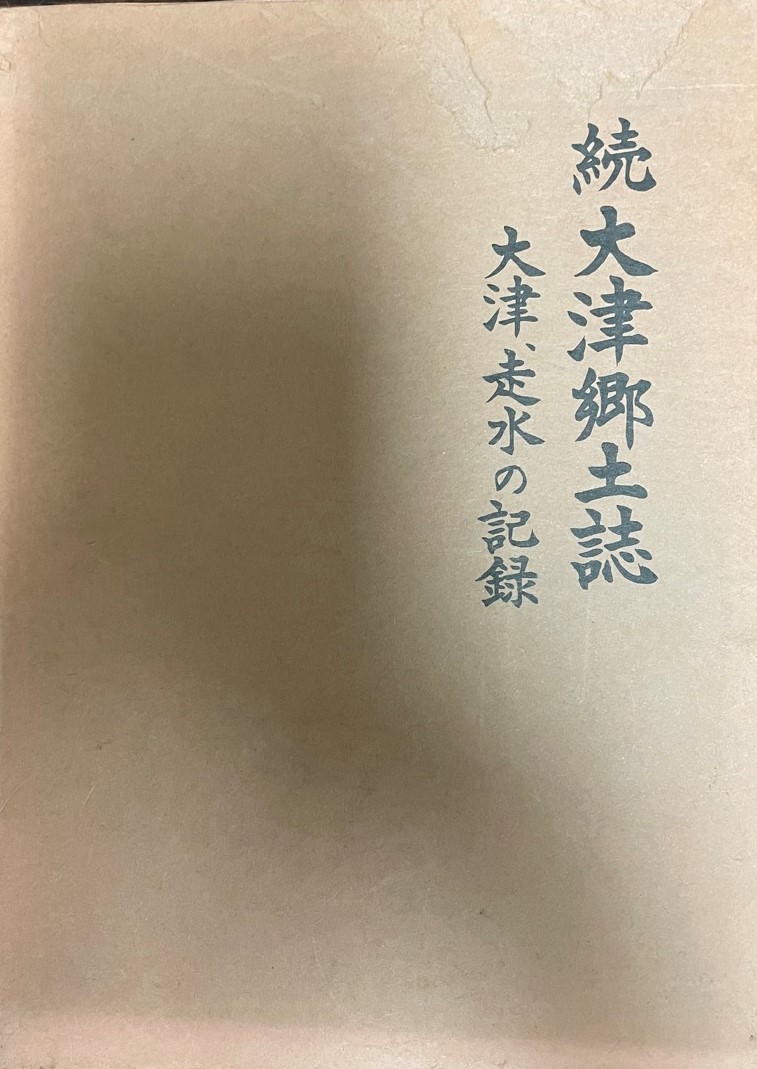 続 大津郷土誌
大津、走水の記録